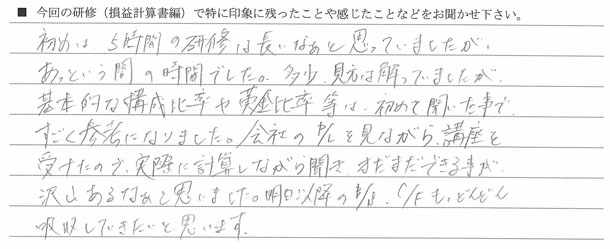 ■ 今回の研修（損益計算書編）で特に印象に残ったことや感じたことなどをお聞かせ下さい。
初めは、5時間の研修は長いなあと思っていましたが、
あっという間の時間でした。多少、見方は解っていましたが、
基本的な構成比率や黄金比率等は、初めて聞いた事で、
すごく参考になりました。会社のP/Lを見ながら、講座を
受けたので、実際に計算しながら聞き、まだまだできる事が
沢山あるなあと思いました。明日以降のB/S、C/Fも、どんどん
吸収していきたいと思います。